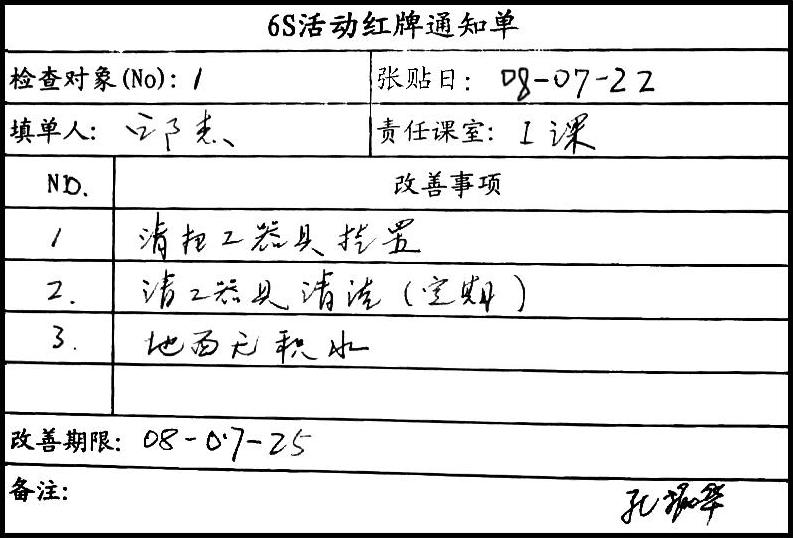 6S活动红牌通知单
检查对象(No): 1 张贴日: 08-07-22
填单人: 邱志 责任课室: I课
NO. 改善事项
1 请把工器具挂置
2. 请工器具清洁(定期)
3. 地面无积水
改善期限: 08-07-25
备注:
孔振华